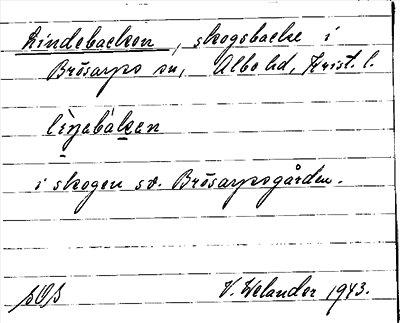 Lindebacken, skogsbacke i
Brösarps sn, Albo hd, Krist. l.
lìŋebàken
i skogen sv. Brösarpsgården.
V. Welander 1943.